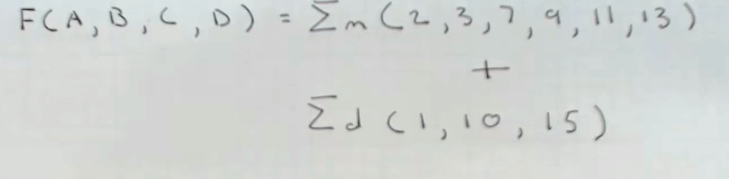 F(A,B,C,D) = Σm(2,3,7,9,11,13)
+
Σd(1,10,15)